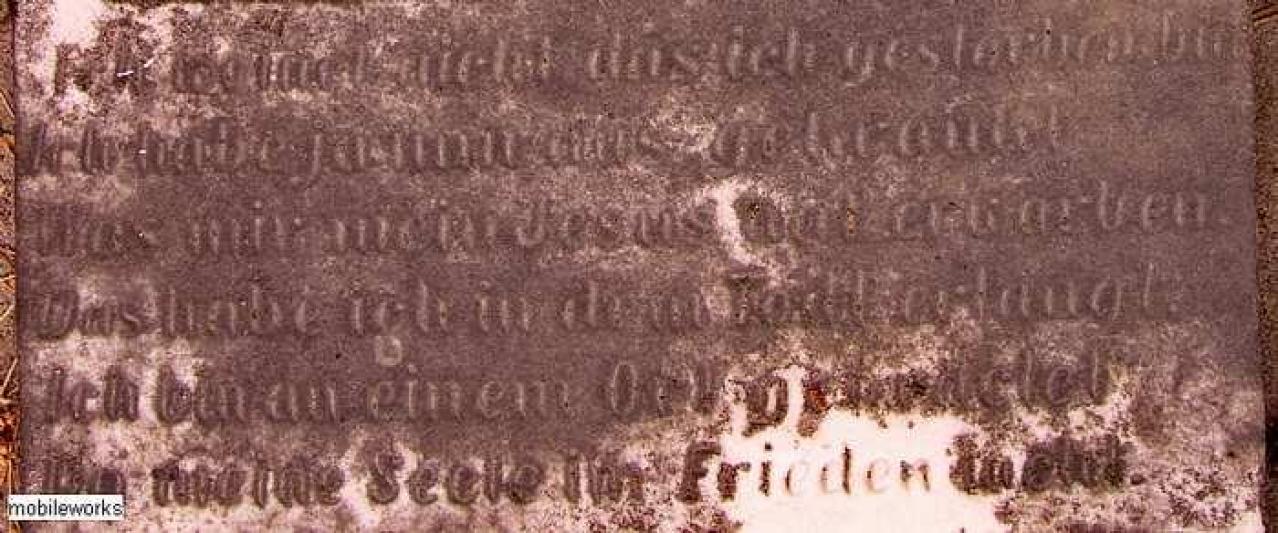 nicht das ich gestorben bin
Ich habe ja nun was gekrankt
Was mir mein Jesus hat erworben
Das habe ich in dem Todt erlangt.
Ich bin an einem
meine Seele im Frieden
mobileworks